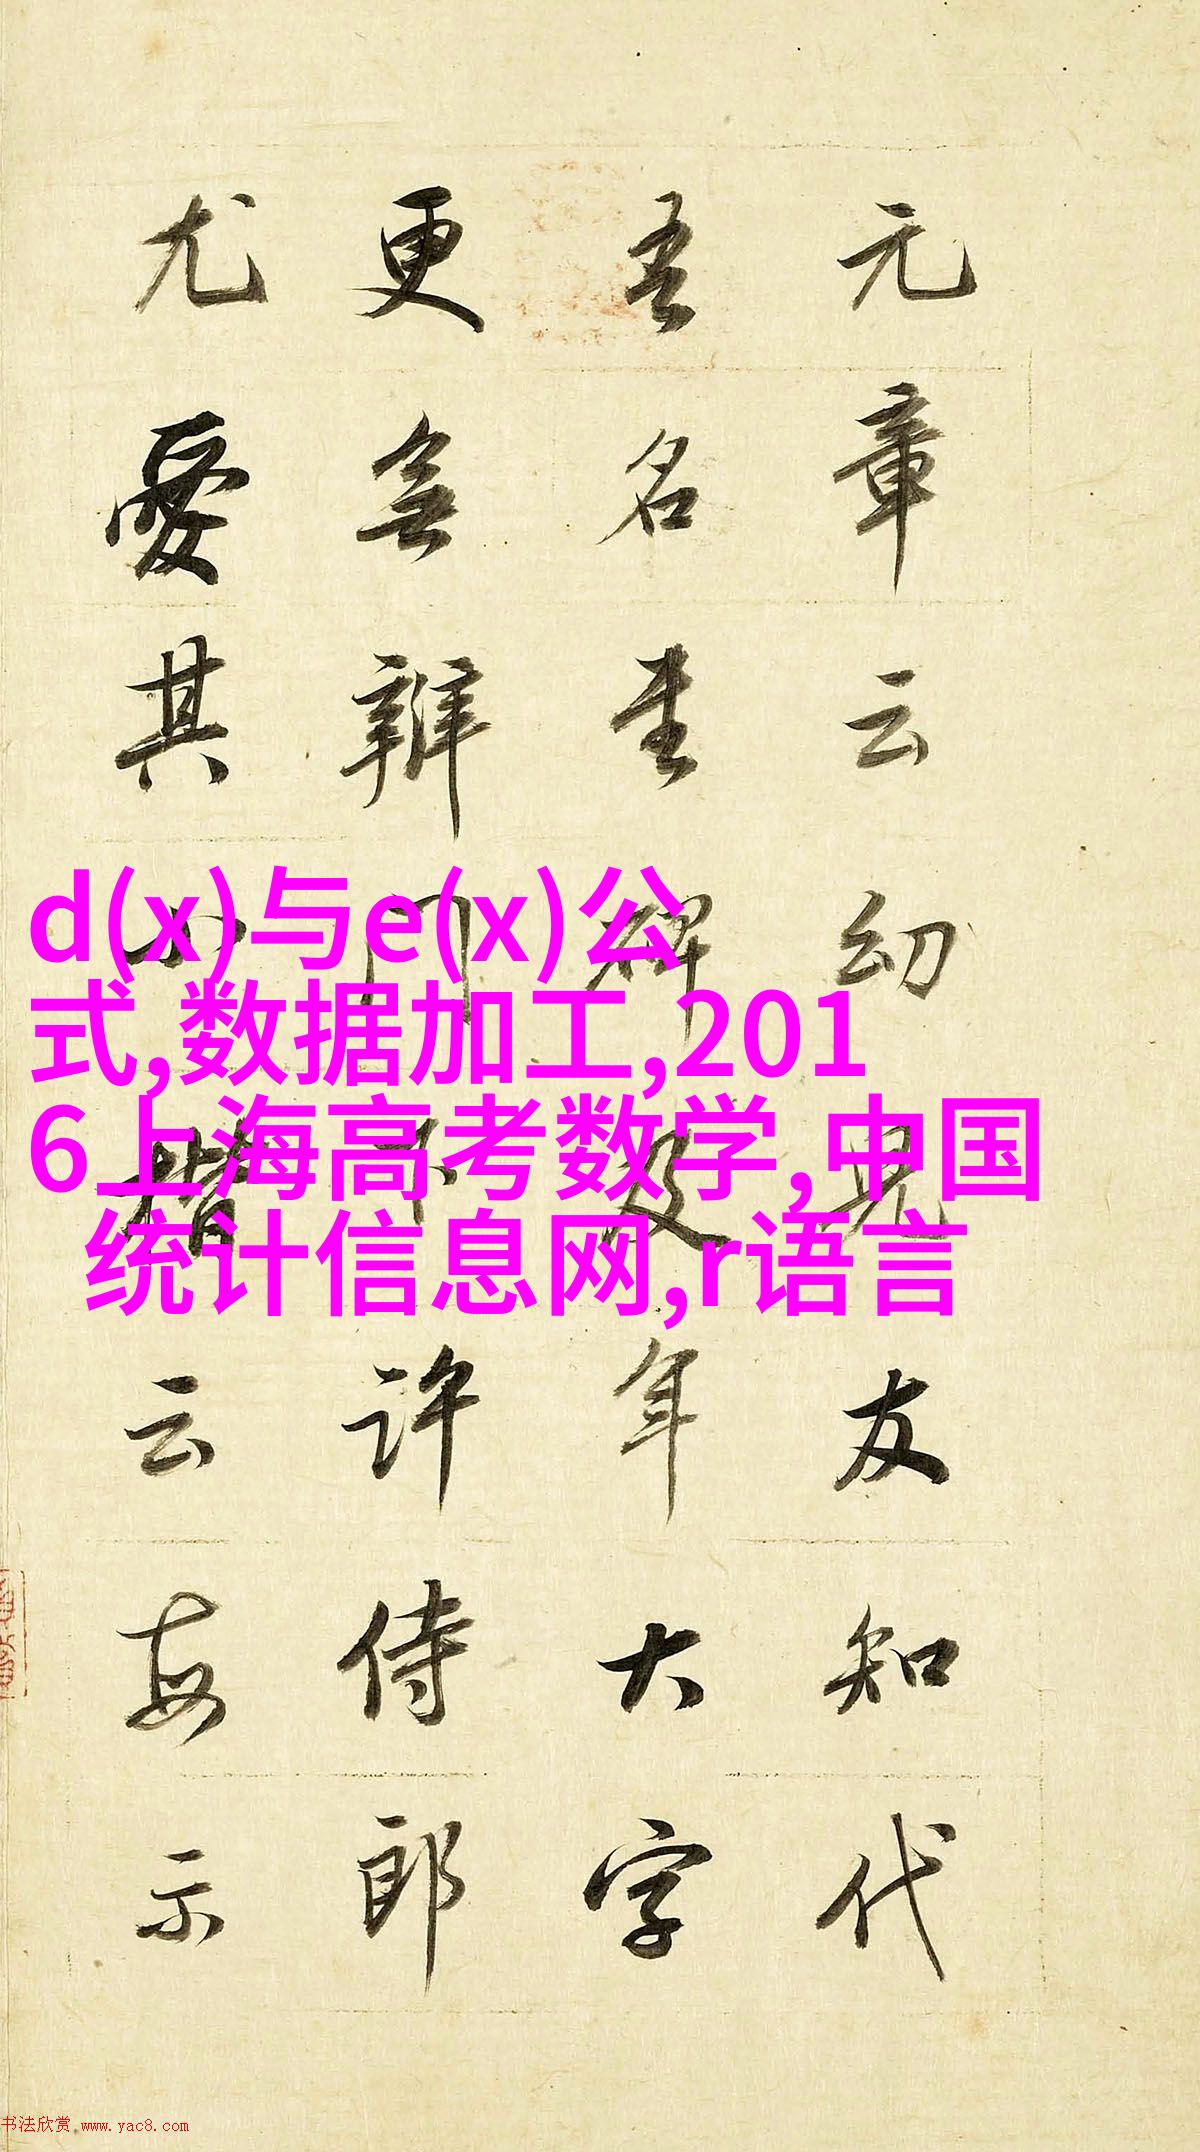 元章云幼兒友知代
吾名書碑及年大字
更無辨門下許侍郎
尤愛其小楷云每示
d(x)与e(x)公
式,数据加工,201
6上海高考数学,中国
统计信息网,r语言
书法欣赏 www.yac8.com